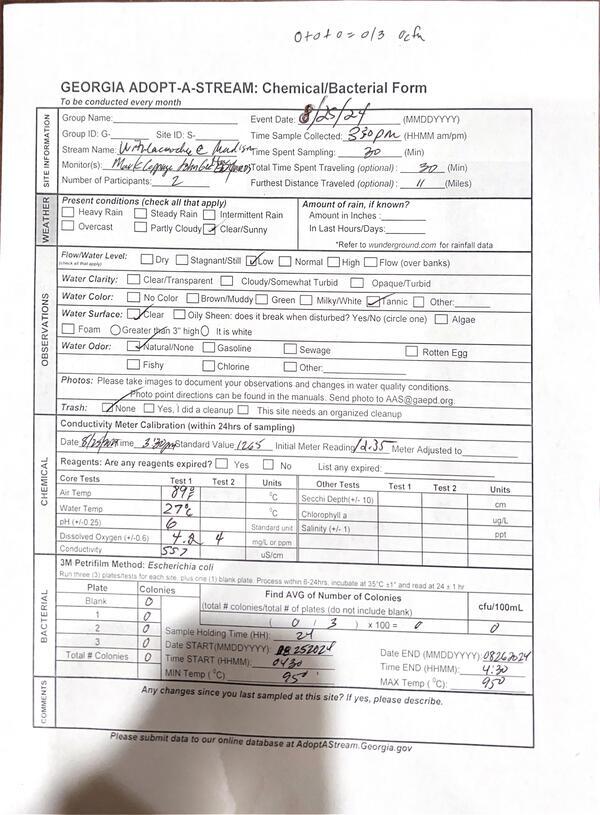 0+0+0 = 0/3 0cfu
GEORGIA ADOPT-A-STREAM: Chemical/Bacterial Form
To be conducted every month
SITE INFORMATION
Group Name: Event Date: 8/25/24 (MMDDYYYY)
Group ID: G- Site ID: S- Time Sample Collected: 330pm (HHMM am/pm)
Stream Name: Withlacoochee @ Madison Time Spent Sampling: 30 (Min)
Monitor(s): Mark John Total Time Spent Traveling (optional): 30 (Min)
Number of Participants: 2 Furthest Distance Traveled (optional): 11 (Miles)
WEATHER
Present conditions (check all that apply) Amount of rain, if known?
Heavy Rain Steady Rain Intermittent Rain Amount in Inches:
Overcast Partly Cloudy Clear/Sunny In Last Hours/Days:
*Refer to wunderground.com for rainfall data
OBSERVATIONS
Flow/Water Level: Dry Stagnant/Still Low Normal High Flow (over banks)
(check all that apply)
Water Clarity: Clear/Transparent Cloudy/Somewhat Turbid Opaque/Turbid
Water Color: No Color Brown/Muddy Green Milky/White Tannic Other:
Water Surface: Clear Oily Sheen: does it break when disturbed? Yes/No (circle one) Algae
Foam Greater than 3" high It is white
Water Odor: Natural/None Gasoline Sewage Rotten Egg
Fishy Chlorine Other:
Photos: Please take images to document your observations and changes in water quality conditions.
Photo point directions can be found in the manuals. Send photo to AAS@gaepd.org.
Trash: None Yes, I did a cleanup This site needs an organized cleanup
CHEMICAL
Conductivity Meter Calibration (within 24hrs of sampling)
Date 8/25/2024 Time 3:30pm Standard Value 1265 Initial Meter Reading 12.35 Meter Adjusted to
Reagents: Are any reagents expired? Yes No List any expired:
Core Tests Test 1 Test 2 Units Other Tests Test 1 Test 2 Units
Air Temp 89° °C Secchi Depth(+/- 10) cm
Water Temp 27°c °C Chlorophyll a ug/L
pH (+/-0.25) 6 Standard unit Salinity (+/- 1) ppt
Dissolved Oxygen (+/-0.6) 4.2 4 mg/L or ppm
Conductivity 557 uS/cm
BACTERIAL
3M Petrifilm Method: Escherichia coli
Run three (3) plates/tests for each site, plus one (1) blank plate. Process within 6-24hrs, incubate at 35°C ±1° and read at 24 ± 1 hr
Plate Colonies Find AVG of Number of Colonies
Blank 0 (total # colonies/total # of plates (do not include blank) cfu/100mL
1 0 ( 0 / 3 ) x 100 = 0 0
2 0 Sample Holding Time (HH): 24
3 0 Date START(MMDDYYYY): 08252024 Date END (MMDDYYYY): 08262024
Total # Colonies 0 Time START (HHMM): 0430 Time END (HHMM): 4:30
MIN Temp (°C): 95° MAX Temp (°C): 95°
COMMENTS
Any changes since you last sampled at this site? If yes, please describe.
Please submit data to our online database at AdoptAStream.Georgia.gov